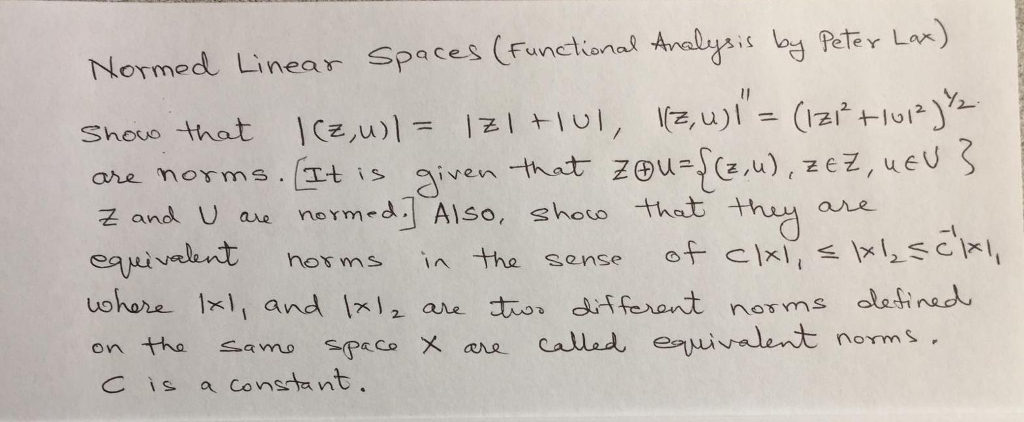 Normed Linear Spaces (Functional Analysis by Peter Lax)
Show that |(z,u)| = |z| + |u|, |(z,u)|" = (|z|² + |u|²)^1/2
are norms. [It is given that Z⊕U = {(z,u), z∈Z, u∈U}
Z and U are normed.] Also, show that they are
equivalent norms in the sense of c|x|₁ ≤ |x|₂ ≤ c⁻¹|x|₁
where |x|₁ and |x|₂ are two different norms defined
on the same space X are called equivalent norms.
C is a constant.